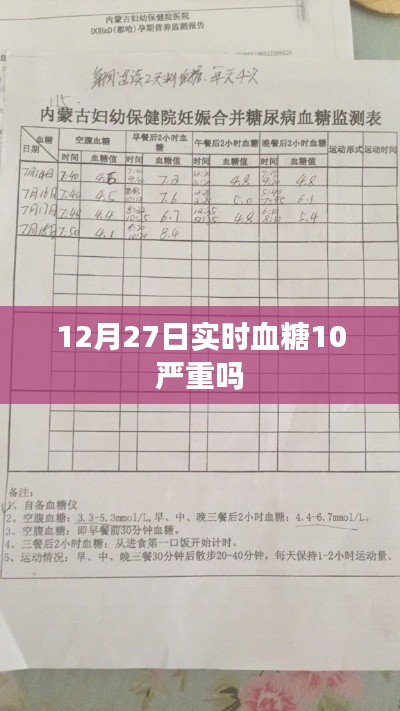 内蒙古妇幼保健院医院
孕期营养监测报告
每周连续2天测血糖、每天4次
内蒙古妇幼保健院妊娠合并糖尿病血糖监测表
血糖 空腹血糖 早餐后2小时血糖 午餐后2小时血糖 晚餐后2小时血糖 运动形式 运动时间
日期 时间 血糖值 时间 血糖值 时间 血糖值 时间 血糖值
7月14日 7:40 7.2 4.8 4.8
7月16日 7:40 4.5 7.6 5.0 6.1
7月17日 7:40 4.4 6.7 4.8 5.4
7月18日 7:50 4.1 8.4
12月27日实时血糖10
严重吗
备注:
1、自备血糖仪
2、空腹血糖:3.3-5.3mmol/L,早、中、晚三餐后2小时血糖:4.4-6.7mmol/L。
3、空腹血糖:即早餐前30分钟血糖。
4、三餐后2小时血糖:从进食第一口饭开始计时。
5、运动情况:早、中、晚三餐30分钟后散步20-40分钟,每天保持1-2小时运动量。